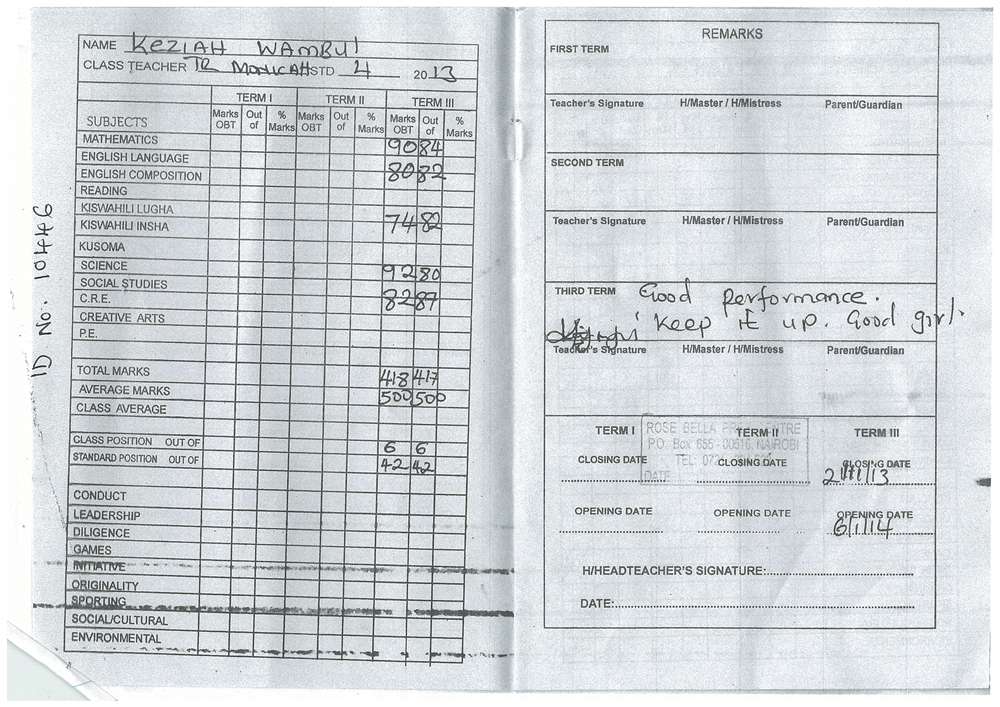 NAME KEZIAH WAMBUI
CLASS TEACHER TR MONICAH STD 4 2013
TERM I TERM II TERM III
SUBJECTS Marks OBT Out of % Marks Marks OBT Out of % Marks Marks OBT Out of % Marks
MATHEMATICS 90 84
ENGLISH LANGUAGE
ENGLISH COMPOSITION 80 82
READING
KISWAHILI LUGHA
KISWAHILI INSHA 74 82
KUSOMA
SCIENCE 92 80
SOCIAL STUDIES
C.R.E. 82 87
CREATIVE ARTS
P.E.
TOTAL MARKS 418 417
AVERAGE MARKS 500 500
CLASS AVERAGE
CLASS POSITION OUT OF 6 6
STANDARD POSITION OUT OF 42 42
CONDUCT
LEADERSHIP
DILIGENCE
GAMES
INITIATIVE
ORIGINALITY
SPORTING
SOCIAL/CULTURAL
ENVIRONMENTAL
ID No. 10446
REMARKS
FIRST TERM
Teacher's Signature H/Master / H/Mistress Parent/Guardian
SECOND TERM
Teacher's Signature H/Master / H/Mistress Parent/Guardian
THIRD TERM Good performance.
Keep it up. Good girl.
Teacher's Signature H/Master / H/Mistress Parent/Guardian
TERM I TERM II TERM III
ROSE BELLA
P.O. Box 655 - 00516, NAIROBI
TEL:
DATE
CLOSING DATE CLOSING DATE CLOSING DATE
21/11/13
OPENING DATE OPENING DATE OPENING DATE
6/1/14
H/HEADTEACHER'S SIGNATURE:
DATE: